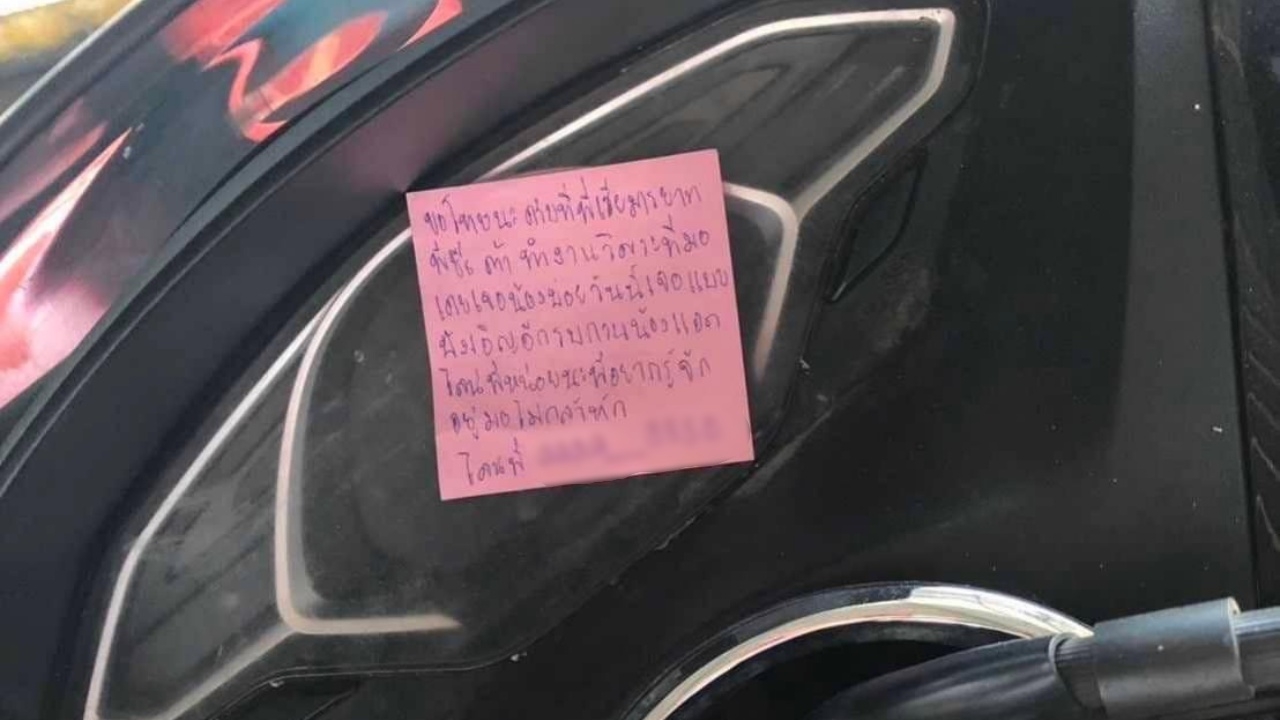 ขอโทษนะ ด้วยที่พี่เสียมารยาท
พี่ชื่อ ต้า ทำงานวิเคราะที่มอ
เคยเจอน้องบ่อยวันนี้เจอแบบ
บังเอิญอีกรบกวนน้องแอด
ไลน์พี่หน่อยนะพี่อยากรู้จัก
อยู่มอไม่กล้าทัก
ไลน์พี่